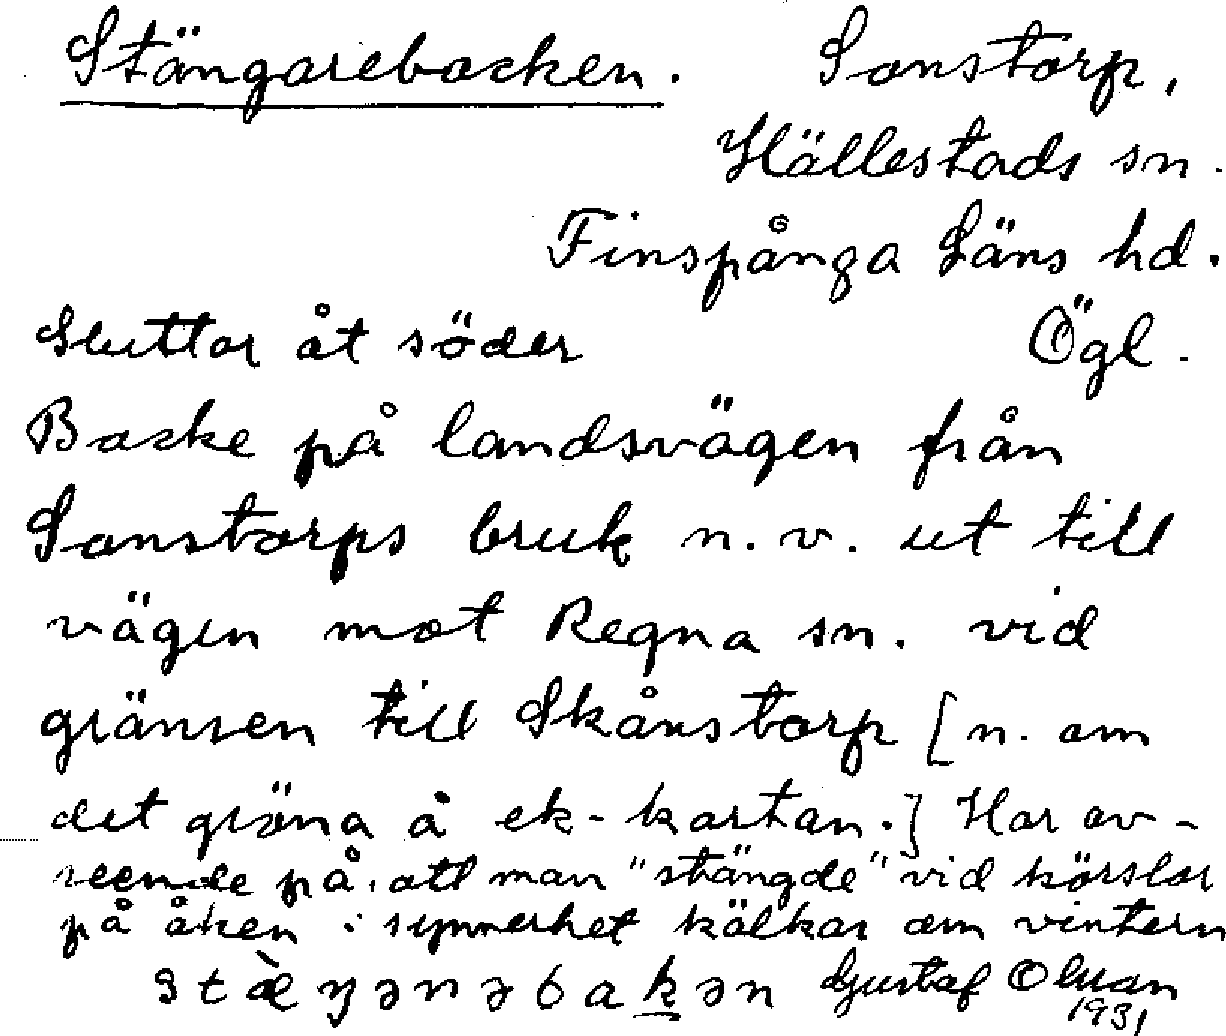 Stängarebacken. Sonstorp,
Hällestads sn.
Finspånga Läns hd.
Sluttar åt söder Ögl.
Backe på landsvägen från
Sonstorps bruk n.v. ut till
vägen mot Regna sn. vid
gränsen till Skånstorp [n. om
det gröna å ek-kartan.] Har av-
seende på, att man "stängde" vid körslor
på åken i synnerhet kälkar om vintern
Gustaf Olsson
1931